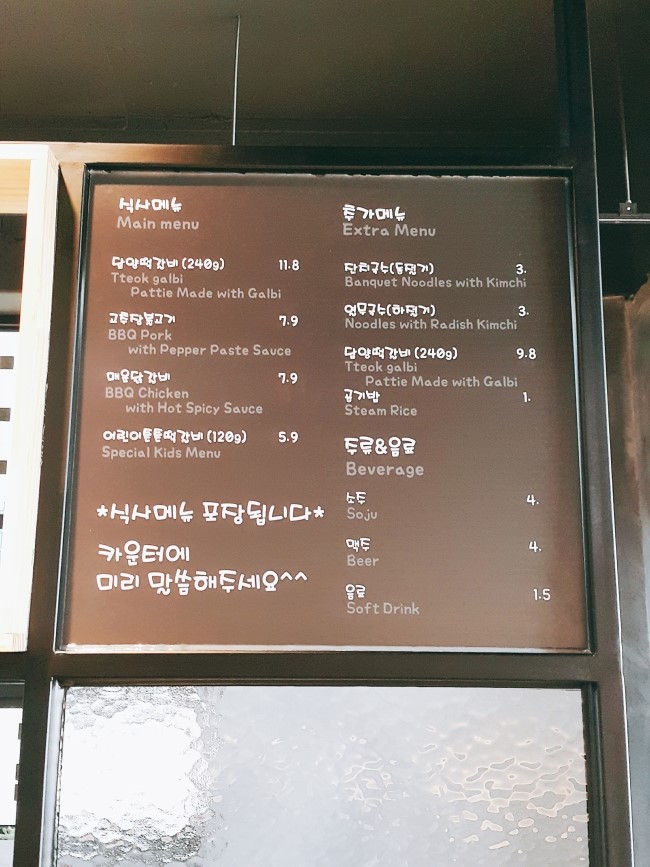 식사메뉴
Main menu
담양떡갈비 (240g) 11.8
Tteok galbi
Pattie Made with Galbi
고추장불고기 7.9
BBQ Pork
with Pepper Paste Sauce
매운닭갈비 7.9
BBQ Chicken
with Hot Spicy Sauce
어린이튼튼떡갈비 (120g) 5.9
Special Kids Menu
*식사메뉴 포장됩니다*
카운터에
미리 말씀해주세요^^
추가메뉴
Extra Menu
잔치국수(동절기) 3.
Banquet Noodles with Kimchi
열무국수(하절기) 3.
Noodles with Radish Kimchi
담양떡갈비 (240g) 9.8
Tteok galbi
Pattie Made with Galbi
공기밥 1.
Steam Rice
주류&음료
Beverage
소주 4.
Soju
맥주 4.
Beer
음료 1.5
Soft Drink